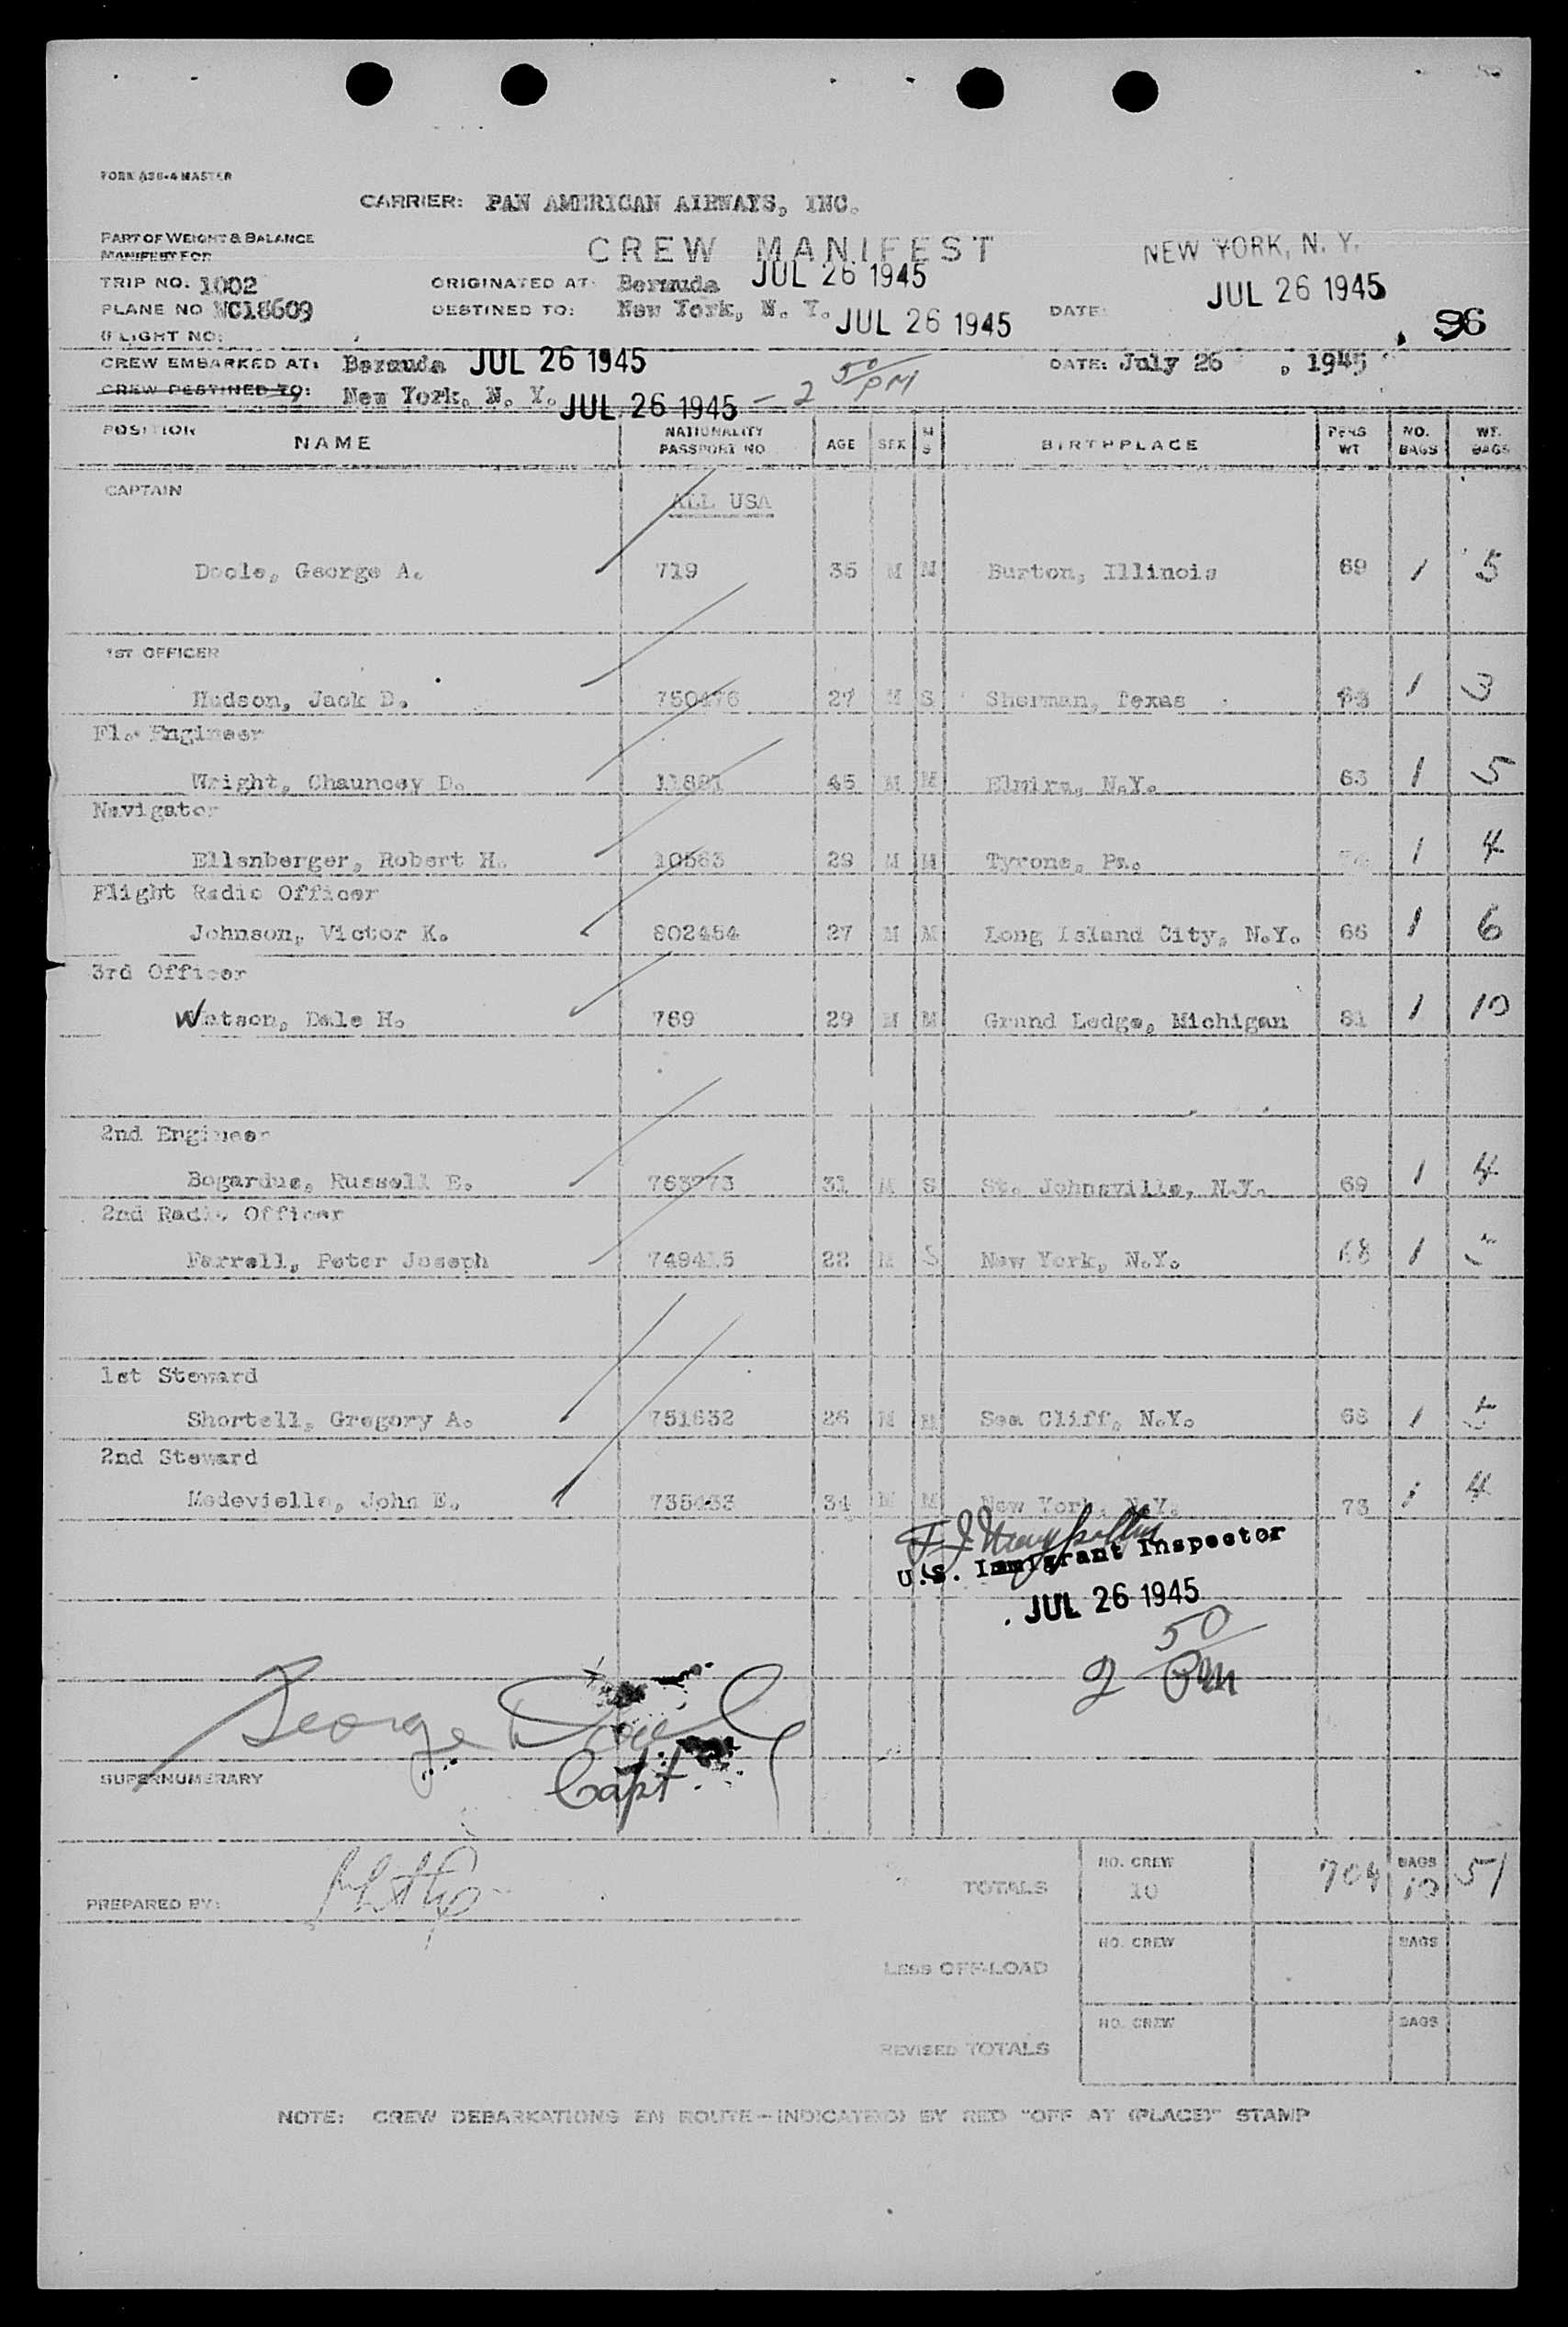 FORM 036-4 MASTER
CARRIER: PAN AMERICAN AIRWAYS, INC.
PART OF WEIGHT & BALANCE
MANIFEST FOR
CREW MANIFEST
NEW YORK, N. Y.
TRIP NO. 1002
ORIGINATED AT: Bermuda JUL 26 1945
JUL 26 1945
PLANE NO NC18609
DESTINED TO: New York, N. Y. JUL 26 1945
DATE:
96
FLIGHT NO:
CREW EMBARKED AT: Bermuda JUL 26 1945
DATE: July 26, 1945
CREW DESTINED TO: New York, N. Y. JUL 26 1945 - 2 50/PM
POSITION NAME NATIONALITY PASSPORT NO AGE SEX M S BIRTHPLACE PERS WT NO. BAGS WT. BAGS
CAPTAIN
ALL USA
Doole, George A. 719 35 M M Burton, Illinois 69 1 5
1ST OFFICER
Hudson, Jack D. 750476 27 M S Sherman, Texas 1 3
Fl. Engineer
Wright, Chauncey D. 45 M M Elmira, N.Y. 63 1 5
Navigator
Ellenberger, Robert H. 10563 29 M M Tyrone, Pa. 1 4
Flight Radio Officer
Johnson, Victor K. 802454 27 M M Long Island City, N.Y. 66 1 6
3rd Officer
Watson, Dale H. 769 29 M M Grand Ledge, Michigan 81 1 10
2nd Engineer
Bogardus, Russell E. 763773 31 M S St. Johnsville, N.Y. 69 1 4
2nd Radio Officer
Farrell, Peter Joseph 749415 22 M S New York, N.Y. 68 1 5
1st Steward
Shortell, Gregory A. 751632 26 M M Sea Cliff, N.Y. 68 1 5
2nd Steward
Medevielle, John E. 735433 34 M M New York, N.Y. 73 1 4
U.S. Immigrant Inspector
JUL 26 1945
2 50/PM
George Doole
Capt
SUPERNUMERARY
PREPARED BY:
TOTALS
NO. CREW 10 704 BAGS 10 51
LESS OFF-LOAD
NO. CREW BAGS
REVISED TOTALS
NO. CREW BAGS
NOTE: CREW DEBARKATIONS EN ROUTE - INDICATE(D) BY RED "OFF AT (PLACE)" STAMP